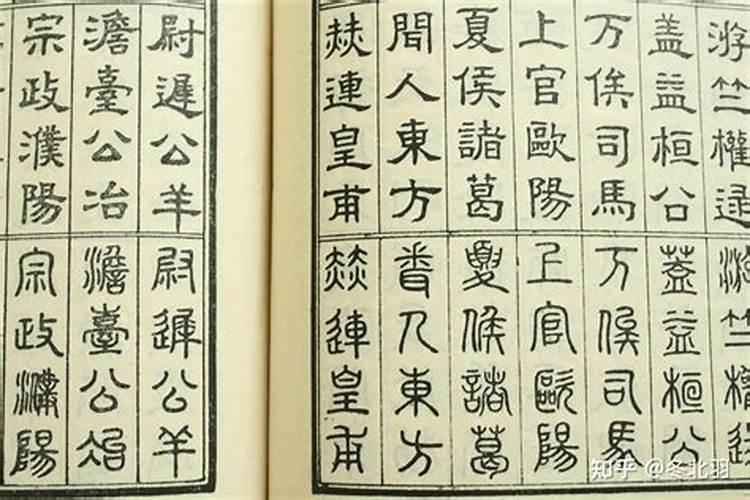 游竺權逯
盖益桓公
万俟司馬
上官歐陽
夏侯諸葛
聞人東方
赫連皇甫
游竺權逯
蓋益桓公
万俟司馬
上官歐陽
夏侯諸葛
聞人東方
赫連皇甫
尉遲公羊
澹臺公冶
宗政濮陽
尉遲公羊
澹臺公冶
宗政濮陽
知乎 @冬北羽